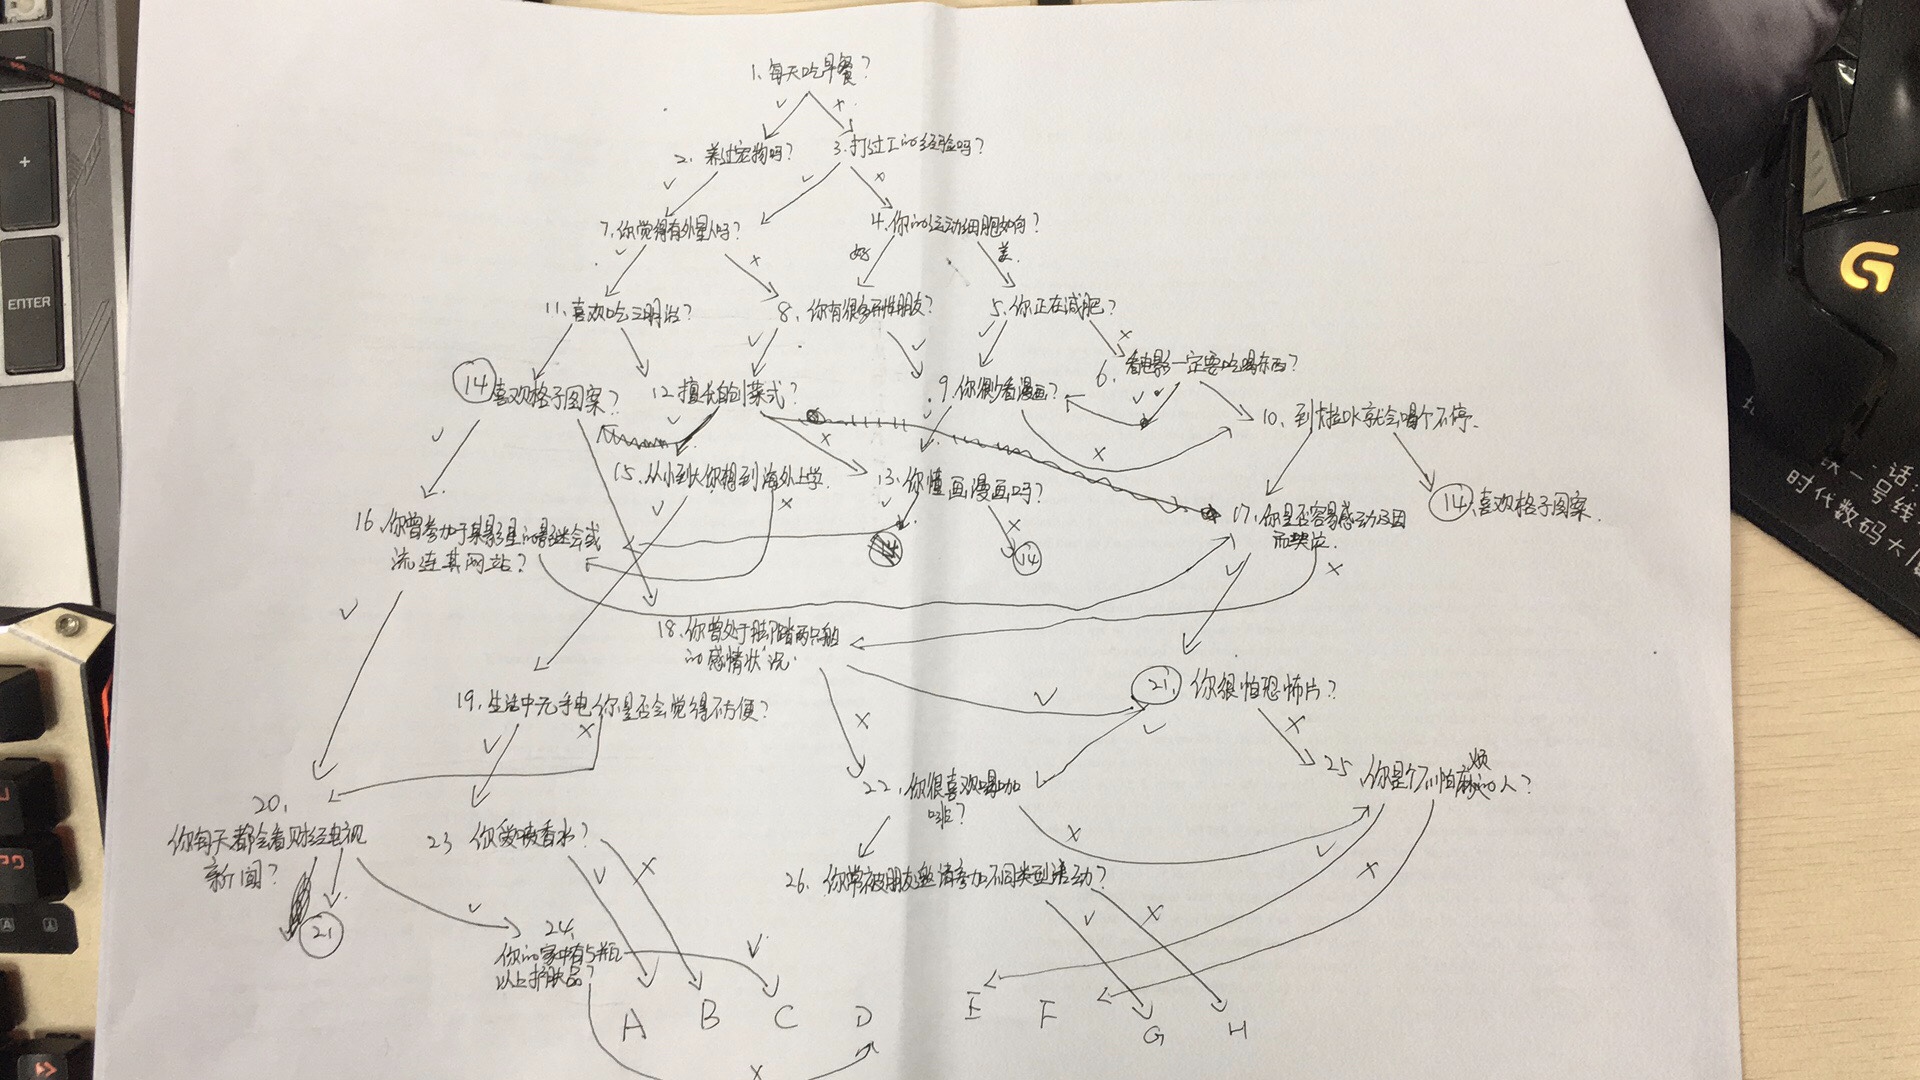 1、每天吃早餐?
2、养过宠物吗?
3、打过工的经验吗?
7、你觉得有外星人吗?
4、你的运动细胞如何?
好
差
11、喜欢吃三明治?
8、你有很多异性朋友?
5、你正在减肥?
6、看电影一定要吃喝东西?
14 喜欢格子图案?
12 擅长自创菜式?
9、你很少看漫画?
10、到卡拉OK就会唱个不停.
15、从小到大你想到海外上学.
13、你懂画漫画吗?
14、喜欢格子图案.
16、你曾参加于某影星的影迷会或
流连其网站?
14
17、你是否容易感动及因
而哭泣.
18、你曾处于脚踏两只船
的感情状况.
21、你很怕恐怖片?
19、生活中无手电你是否会觉得不方便?
20、
你每天都会看财经电视
新闻?
23 你爱喷香水?
22、你很喜欢喝咖
啡?
25、你是个不怕麻烦的人?
26、你常被朋友邀请参加不同类型活动?
21
24、
你的家中有5瓶
以上护肤品?
A B C D E F G H
ENTER
+
G
时代数码大
号线
话: